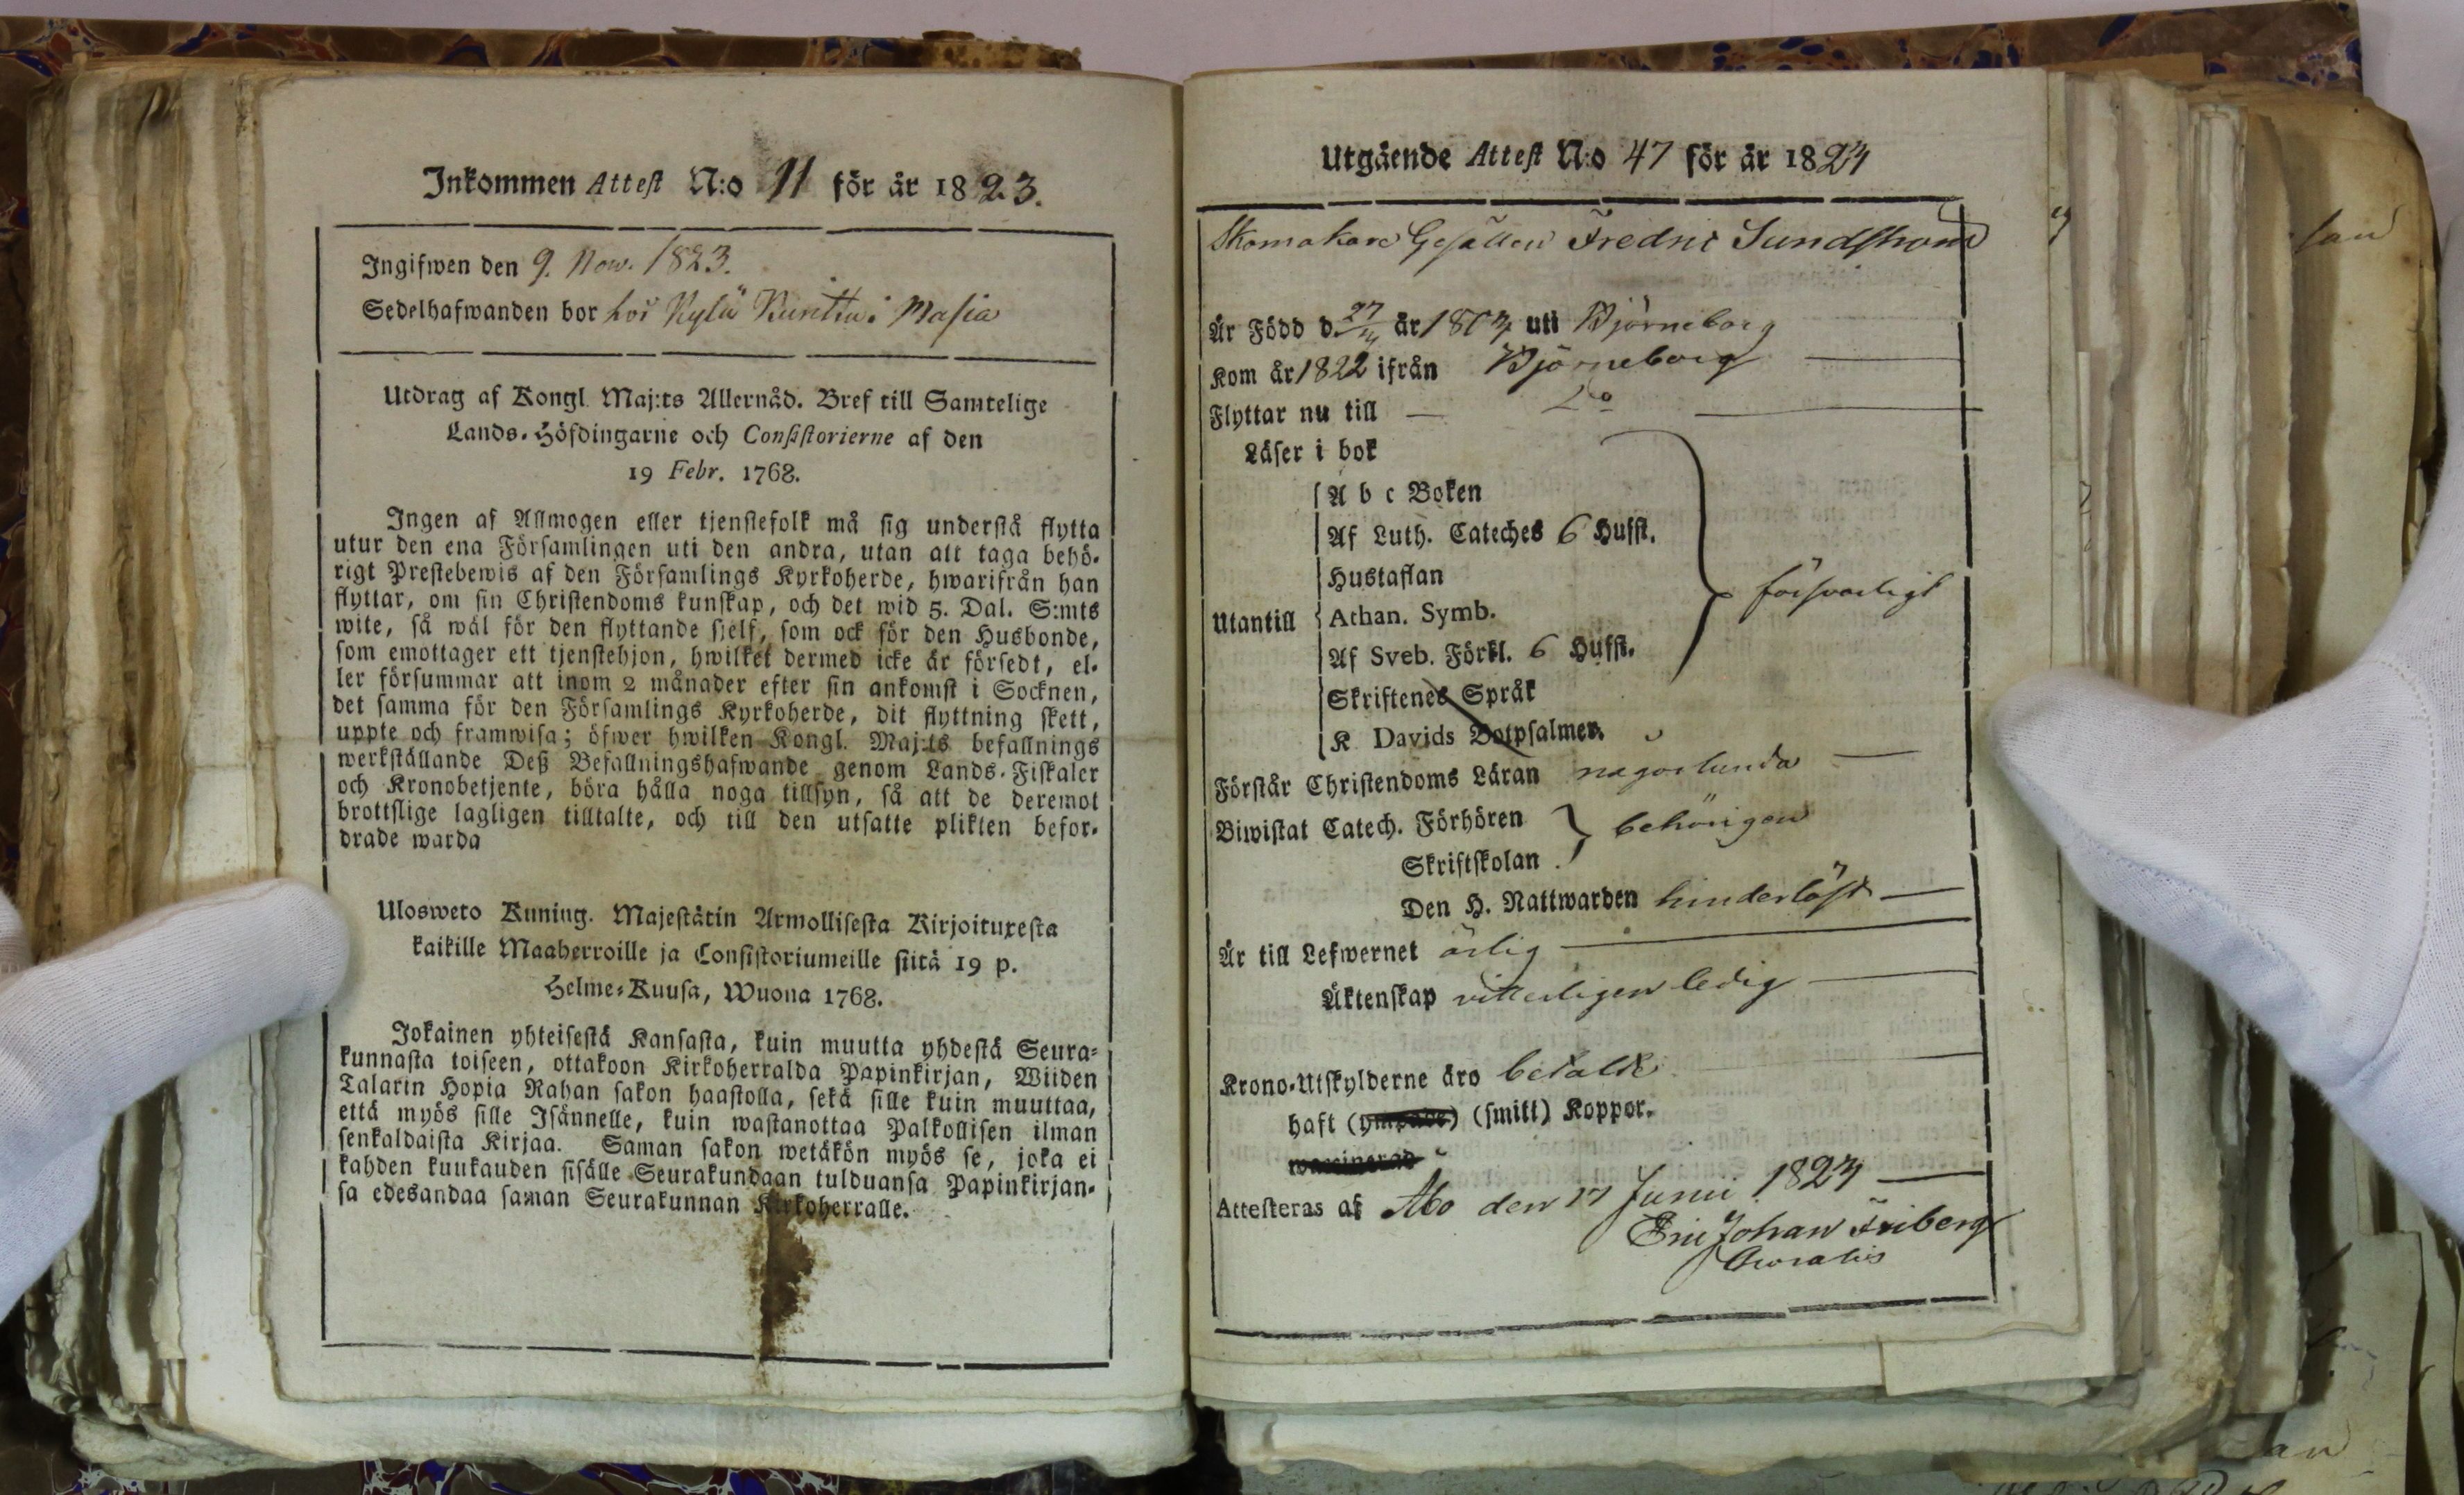 Inkommen Attest N:o 11 för år 1823.
Ingifwen den 9. Now. 1823.
Sedelhafwanden bor hos Kylä i Masia
Utdrag af Kongl. Maj:ts Allernåd. Bref till Samtelige
Lands-Höfdingarne och Consistorierne af den
19 Febr. 1768.
Ingen af Allmogen eller tjenstefolk må sig understå flytta
utur den ena Församlingen uti den andra, utan att taga behö-
rigt Prestebewis af den Församlings Kyrkoherde, hwarifrån han
flyttar, om sin Christendoms kunskap, och det wid 5. Dal. S:mts
wite, så wäl för den flyttande sjelf, som ock för den Husbonde,
som emottager ett tjenstehjon, hwilket dermed icke är försedt, el-
ler försummar att inom 2 månader efter sin ankomst i Socknen,
det samma för den Församlings Kyrkoherde, dit flyttning skett,
uppte och framwisa; öfwer hwilken Kongl. Maj:ts befallnings
werkställande Deß Befallningshafwande genom Lands-Fiskaler
och Kronobetjente, böra hålla noga tillsyn, så att de deremot
brottslige lagligen tilltalte, och till den utsatte plikten befor-
drade warda
Ulosweto Kuning. Majestätin Armollisesta Kirjoituxesta
kaikille Maaherroille ja Consistoriumeille siitä 19 p.
Helme-Kuusa, Wuona 1768.
Jokainen yhteisestä Kansasta, kuin muutta yhdestä Seura-
kunnasta toiseen, ottakoon Kirkoherralda Papinkirjan, Wiiden
Talarin Hopia Rahan sakon haastolla, sekä sille kuin muuttaa,
että myös sille Isännelle, kuin wastanottaa Palkollisen ilman
senkaldaista Kirjaa. Saman sakon wetäkön myös se, joka ei
kahden kuukauden sisälle Seurakundaan tulduansa Papinkirjan-
sa edesandaa saman Seurakunnan Kirkoherralle.
Utgående Attest N:o 47 för år 1823
Skomakare Gesällen Fredric Sundstrom
Är Född d. 27/4 år 1803 uti Björneborg
Kom år 1822 ifrån Björneborg
Flyttar nu till — Do
Läser i bok
A b c Boken
Af Luth. Cateches 6 Hufst.
Hustaflan
Utantill Athan. Symb. försvarligt
Af Sveb. Förkl. 6 Hufst.
Skriftenes Språk
K Davids Botpsalmer.
Förstår Christendoms Läran någorlunda
Biwistat Catech. Förhören behörigen
Skriftskolan
Den H. Nattwarden hinderlöst
Är till Lefwernet ärlig
Äktenskap vitterligen ledig
Krono-Utskylderne äro betalde
haft (ympade) (smitt) Koppor.
waccinerad
Attesteras af Åbo den 17 Junii 1823
Eric Johan Friberg